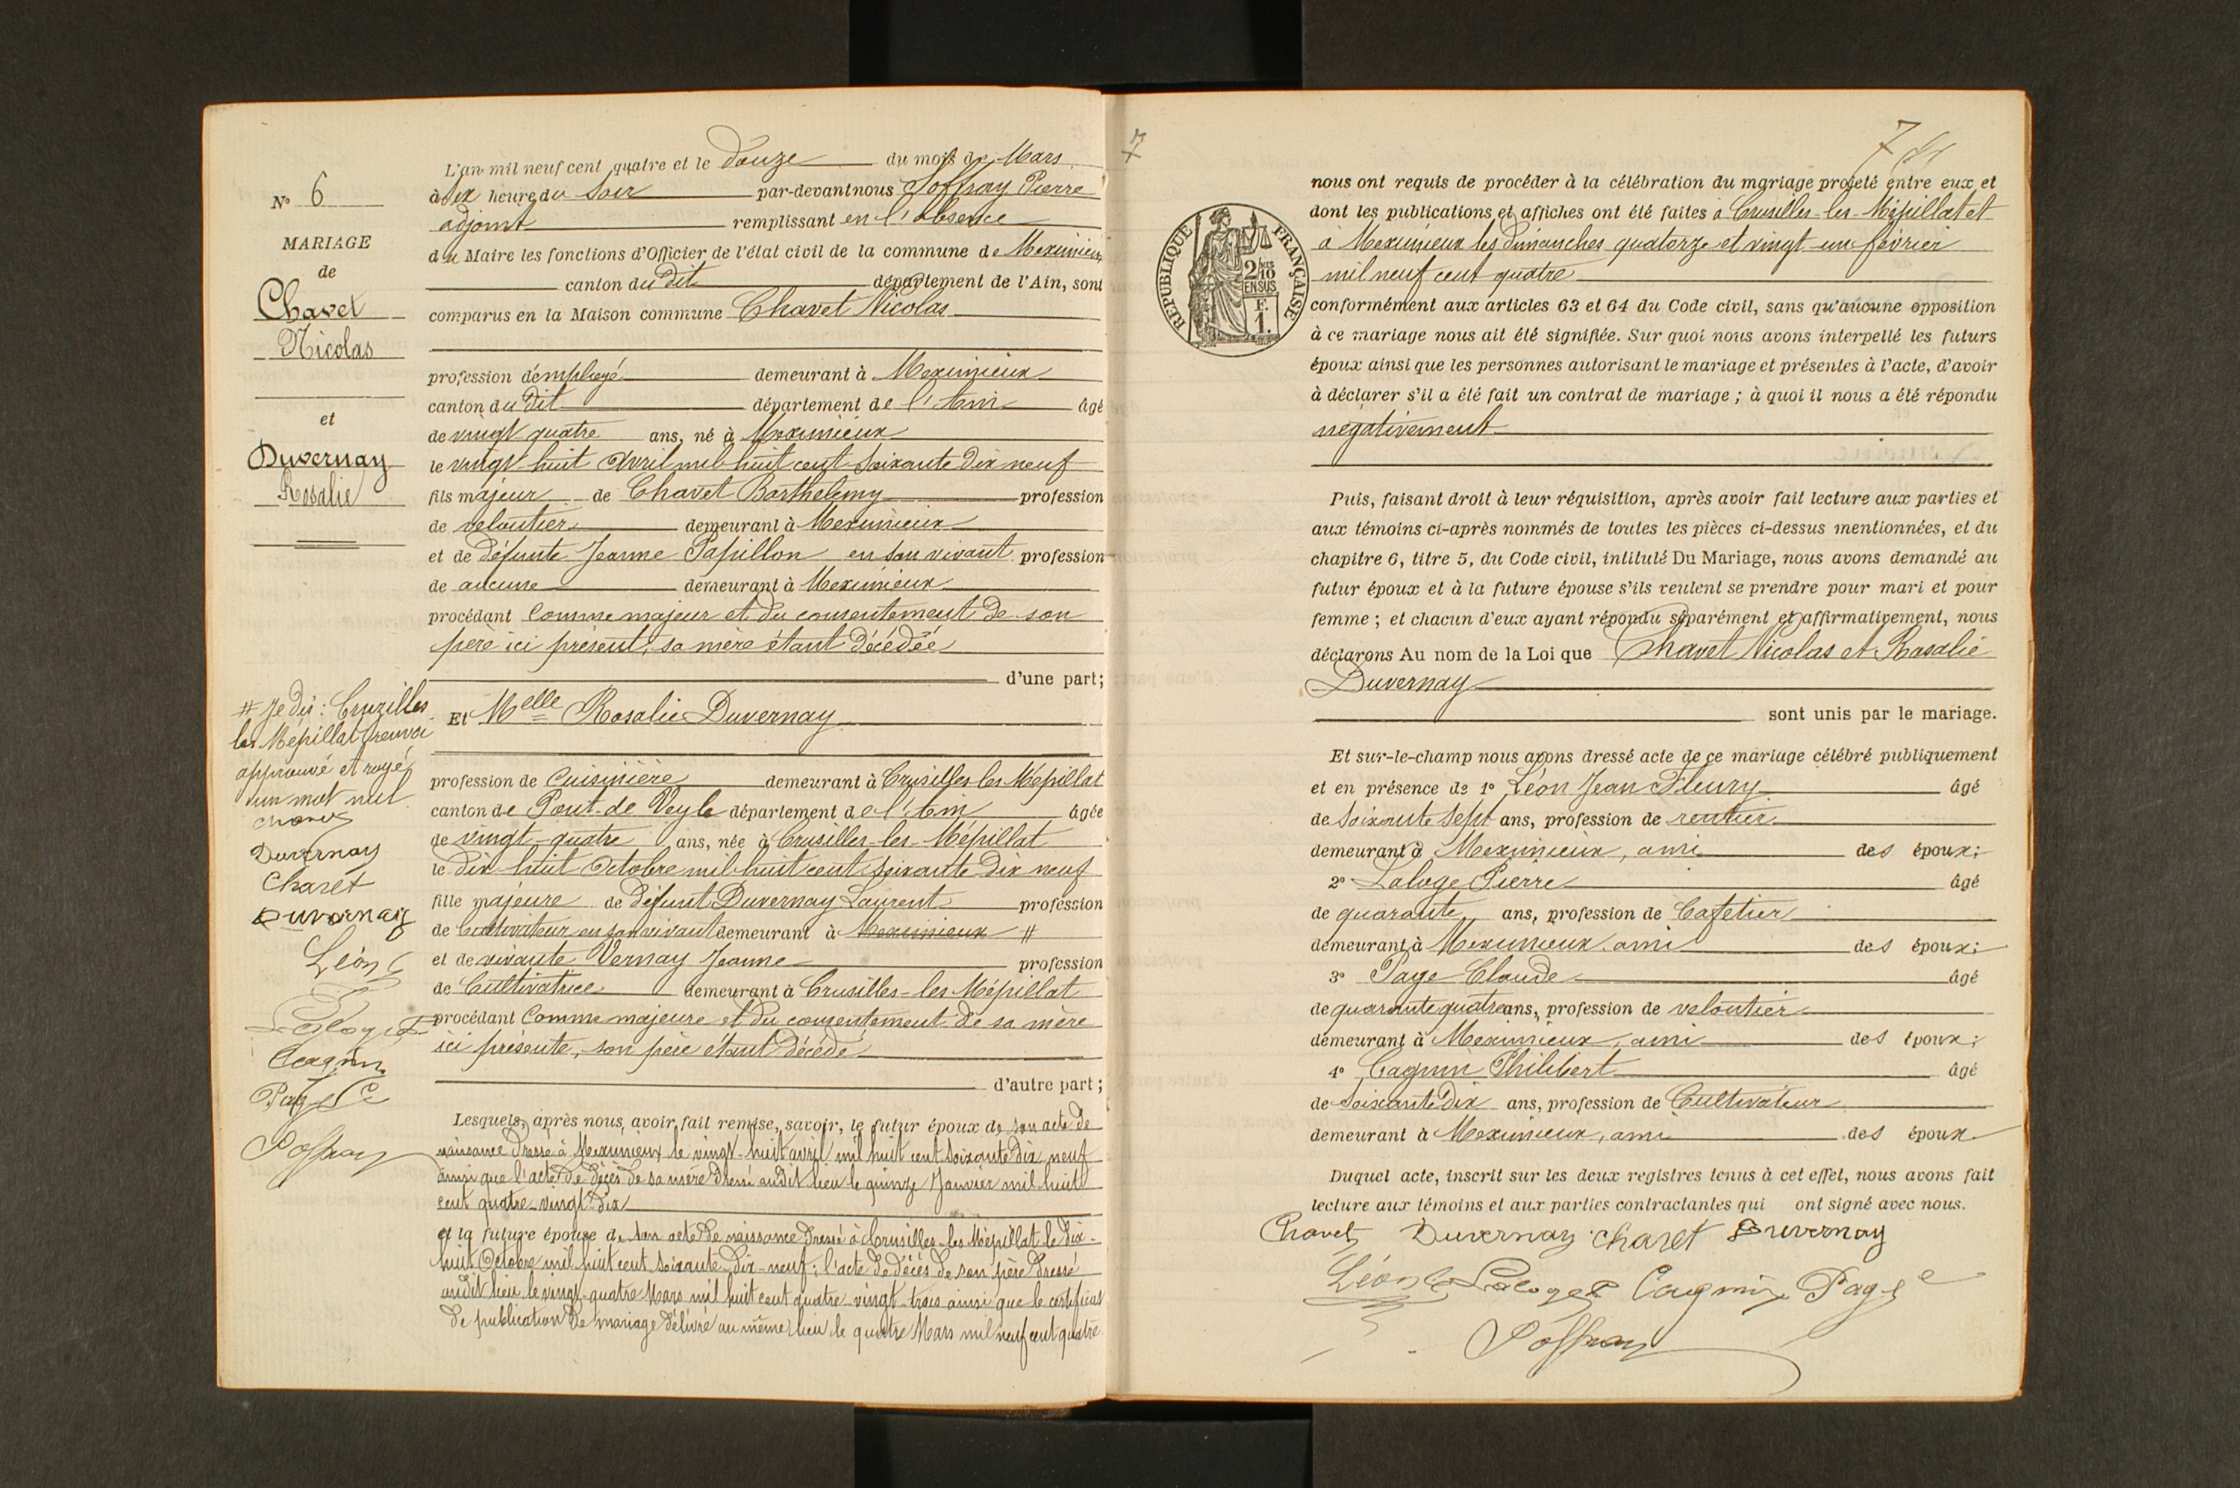 N° 6
MARIAGE
de
Chavet
Nicolas
et
Duvernay
Rosalie
# Je dis: Cruzilles
les Mépillat, renvoi
approuvé et rayé
un mot nul
Chavet
Duvernay
Chavet
Duvernay
Léon
Laloge P
Cagnin
Page C
L'an mil neuf cent quatre et le douze du mois de Mars
à six heure du soir par-devant nous Poffray Pierre
adjoint remplissant en l'absence
du Maire les fonctions d'Officier de l'état civil de la commune de Meximieux
canton du dit département de l'Ain, sont
comparus en la Maison commune Chavet Nicolas
profession d'employé demeurant à Meximieux
canton du dit département de l'Ain âgé
de vingt quatre ans, né à Meximieux
le vingt-huit Avril mil huit cent soixante dix neuf
fils majeur de Chavet Barthelemy profession
de veloutier demeurant à Meximieux
et de défunte Jeanne Papillon en son vivant profession
de aucune demeurant à Meximieux
procédant comme majeur et du consentement de son
père ici présent, sa mère étant décédée
d'une part;
Et Melle Rosalie Duvernay
profession de Cuisinière demeurant à Crusilles les Mépillat
canton de Pont-de Veyle département de l'Ain âgée
de vingt-quatre ans, née à Crusilles-les-Mépillat
le dix huit Octobre mil huit cent soixante dix neuf
fille majeure de défunt Duvernay Laurent profession
de Cultivateur en son vivant demeurant à Meximieux #
et de vivante Vernay Jeanne profession
de Cultivatrice demeurant à Crusilles-les Mépillat
procédant Comme majeure et du consentement de sa mère
ici présente, son père étant décédé
d'autre part;
Lesquels, après nous avoir fait remise, savoir, le futur époux de son acte de
naissance dressé à Meximieux le vingt-huit avril mil huit cent soixante dix neuf
ainsi que l'acte de décès de sa mère dressé audit lieu le quinze Janvier mil huit
cent quatre-vingt dix
et la future épouse de son acte de naissance dressé à Crusilles-les Mépillat le dix-
huit Octobre mil huit cent soixante-dix-neuf; l'acte de décès de son père dressé
audit lieu le vingt-quatre Mars mil huit cent quatre-vingt-trois ainsi que le certificat
de publication de mariage délivré au même lieu le quatre Mars mil neuf cent quatre
7
7
RÉPUBLIQUE FRANÇAISE
2/10
EN SUS
F.
1.
nous ont requis de procéder à la célébration du mariage projeté entre eux et
dont les publications et affiches ont été faites à Crusilles-les-Mépillat et
à Meximieux les dimanches quatorze et vingt-un février
mil neuf cent quatre
conformément aux articles 63 et 64 du Code civil, sans qu'aucune opposition
à ce mariage nous ait été signifiée. Sur quoi nous avons interpellé les futurs
époux ainsi que les personnes autorisant le mariage et présentes à l'acte, d'avoir
à déclarer s'il a été fait un contrat de mariage; à quoi il nous a été répondu
négativement
Puis, faisant droit à leur réquisition, après avoir fait lecture aux parties et
aux témoins ci-après nommés de toutes les pièces ci-dessus mentionnées, et du
chapitre 6, titre 5, du Code civil, intitulé Du Mariage, nous avons demandé au
futur époux et à la future épouse s'ils veulent se prendre pour mari et pour
femme; et chacun d'eux ayant répondu séparément et affirmativement, nous
déclarons Au nom de la Loi que Chavet Nicolas et Rosalie
Duvernay
sont unis par le mariage.
Et sur-le-champ nous avons dressé acte de ce mariage célébré publiquement
et en présence de 1° Léon Jean Fleury âgé
de soixante sept ans, profession de rentier
demeurant à Meximieux, ami des époux;
2° Laloge Pierre âgé
de quarante ans, profession de Cafetier
demeurant à Meximieux ami des époux;
3° Page Claude âgé
de quarante quatre ans, profession de veloutier
demeurant à Meximieux, ami des époux;
4° Cagnin Philibert âgé
de soixante dix ans, profession de Cultivateur
demeurant à Meximieux, ami des époux
Duquel acte, inscrit sur les deux registres tenus à cet effet, nous avons fait
lecture aux témoins et aux parties contractantes qui ont signé avec nous.
Chavet Duvernay Chavet Duvernay
Léon Laloge P Cagnin Page C
Poffray